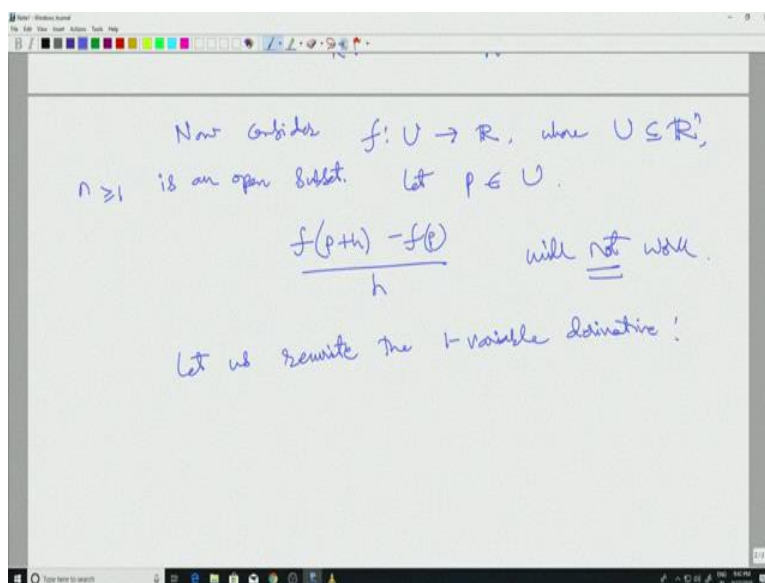 Note1 - Windows Journal
File Edit View Insert Actions Tools Help
Now consider f: U → ℝ, where U ⊆ ℝⁿ,
n ≥ 1 is an open subset. Let p ∈ U.
f(p+h) - f(p)
h
will not work.
Let us rewrite the 1-variable derivative:
Type here to search